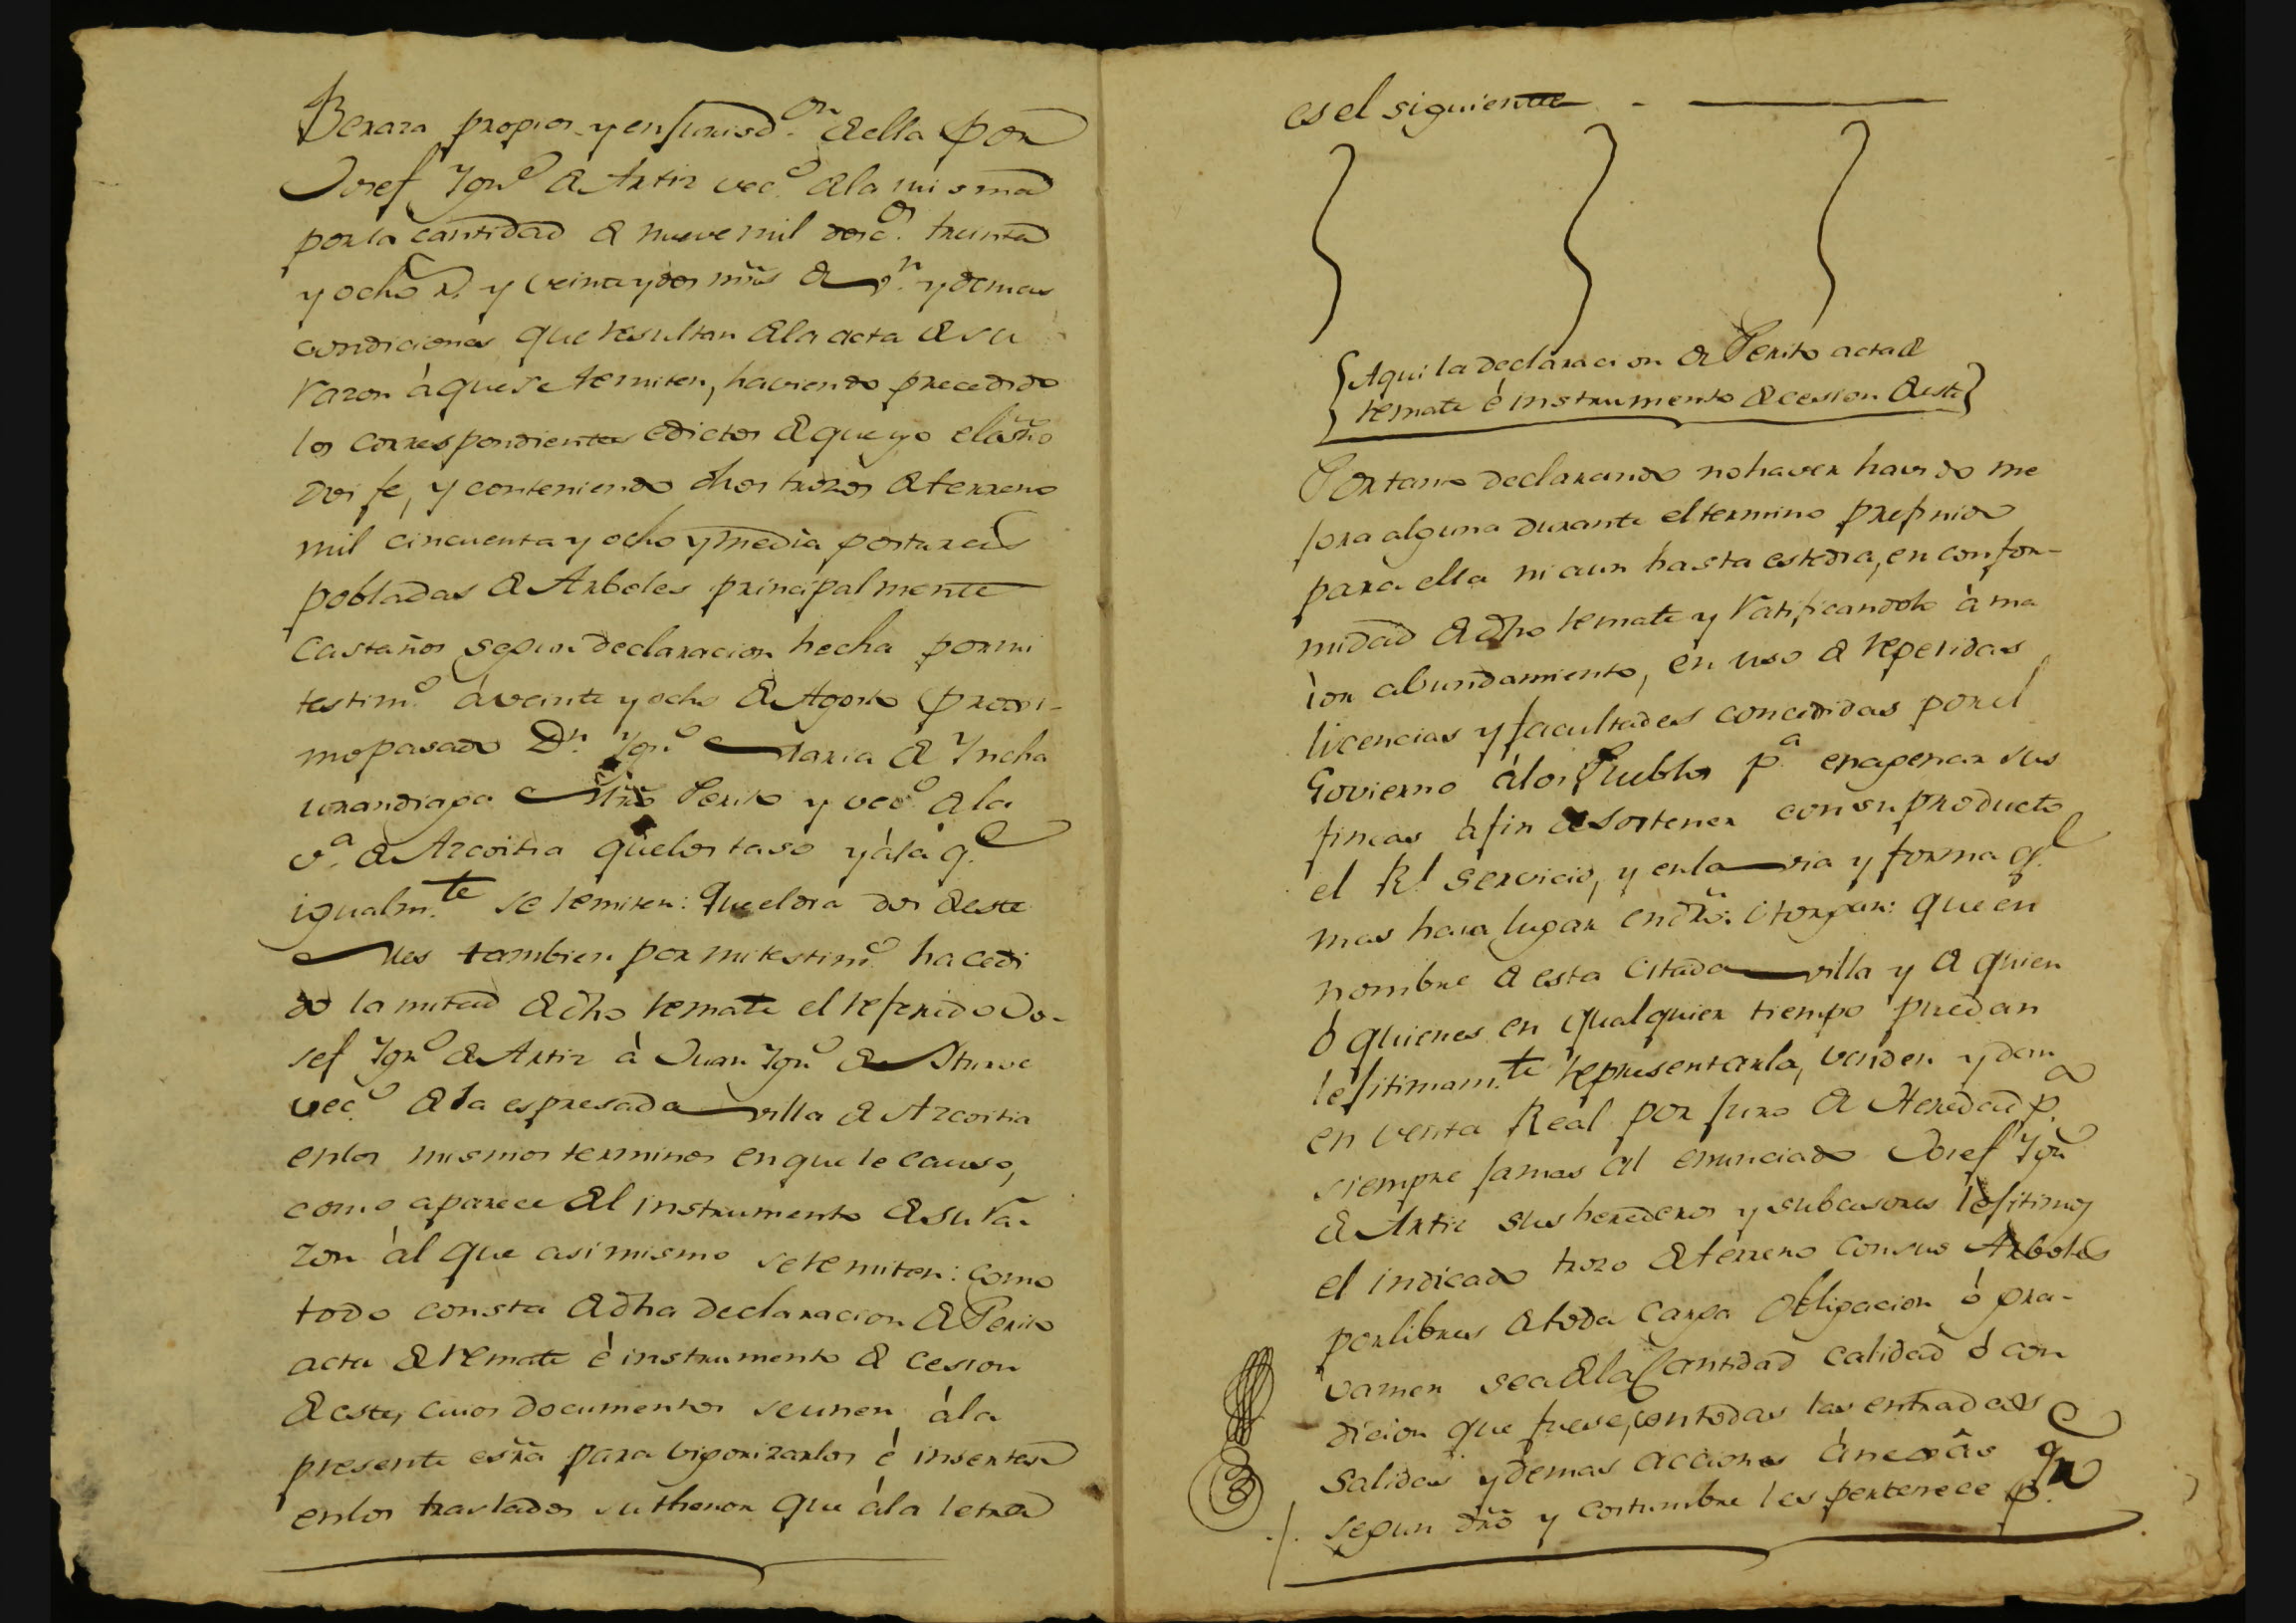 Beraza propios y en jurisd.on de ella por
Josef Ygn.o de Artiz vec.o de la misma
por la cantidad de nueve mil dosc.s treinta
y ocho r.s y veinte y dos mrs de v.n y demas
condiciones que resultan de la acta de su
razon à que se remiten, haviendo precedido
los correspondientes edictos de que yo el Essno
doi fe, y conteniendo dhos trozos de terreno
mil cincuenta y ocho y media posturas
pobladas de Arboles principalmente
castaños segun declaracion hecha por mi
testim.o à veinte y ocho de Agosto proxi-
mo pasado D.n Ygn.o Maria de Yncha
urandiaga Mro Perito y vec.o de la
v.a de Azcoitia que los taso y à la q.e
igualm.te se remiten: Que el dia dos de este
Mes tambien por mi testim.o ha cedi
do la mitad de dho remate el referido Jo-
sef Ygn.o de Artiz à Juan Ygn.o de Yturbe
vec.o de la espresada villa de Azcoitia
en los mismos terminos en que le causo,
como aparece del instrumento de su ra-
zon àl que asi mismo se remiten: como
todo consta de dha declaracion de Perito
acta de remate è instrumento de cesion
de este, cuios documentos se unen à la
presente esra para vigorizarlos è inserten
en los traslados su thenor que à la letra
es el siguiente -
{Aqui la declaracion de Perito acta de
remate è instrumento de cesion de este}
Por tanto declarando no haver havido me
jora alguna durante el termino prefinido
para ella ni aun hasta este dia, en confor-
midad de dho remate y ratificandole à ma
ior abundamiento, en uso de repetidas
licencias y facultades concedidas por el
Govierno à los Pueblos p.a enagenar sus
fincas à fin de sostener con su producto
el R.l servicio, y en la via y forma q.e
mas haia lugar en dro: Otorgan: que en
nombre de esta citada villa y de quien
ó quienes en qualquier tiempo puedan
lejitimam.te representarla, venden y dan
en venta Real por juro de Heredad p.a
siempre jamas al enunciado Josef Ygn.o
de Artiz sus herederos y subcesores lejitimos
el indicado trozo de terreno con sus Arboles
por libres de toda carga obligacion ó gra-
vamen sea de la cantidad calidad ó con
dicion que fuese, con todas las entradas
salidas y demas acciones ànexâs q.e
segun dro y costumbre les pertenece p.r